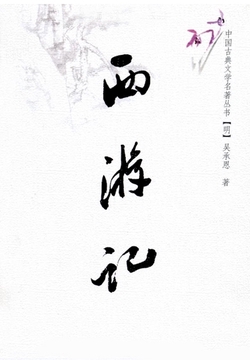 西游记
中国古典文学名著丛书【明】吴承恩 著